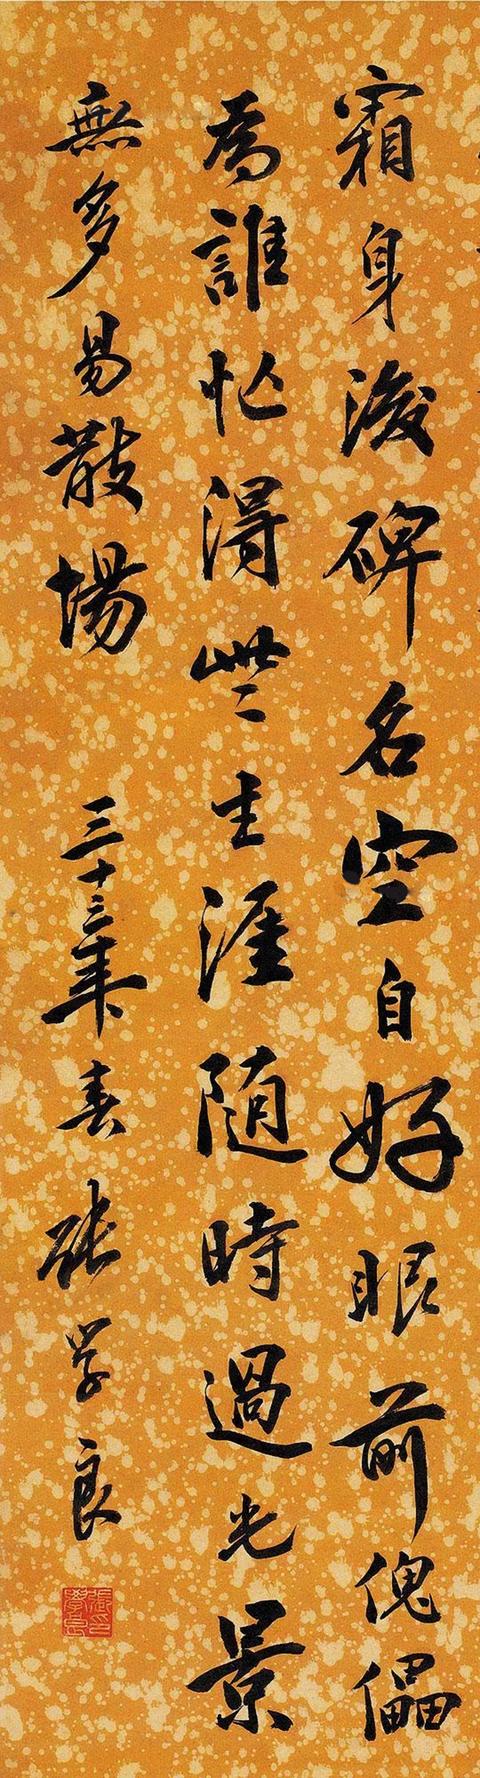 霜身後碑名空自好眼前傀儡
為誰忙得些生涯隨時過光景
無多易散場
三十三年春張學良
張學良印